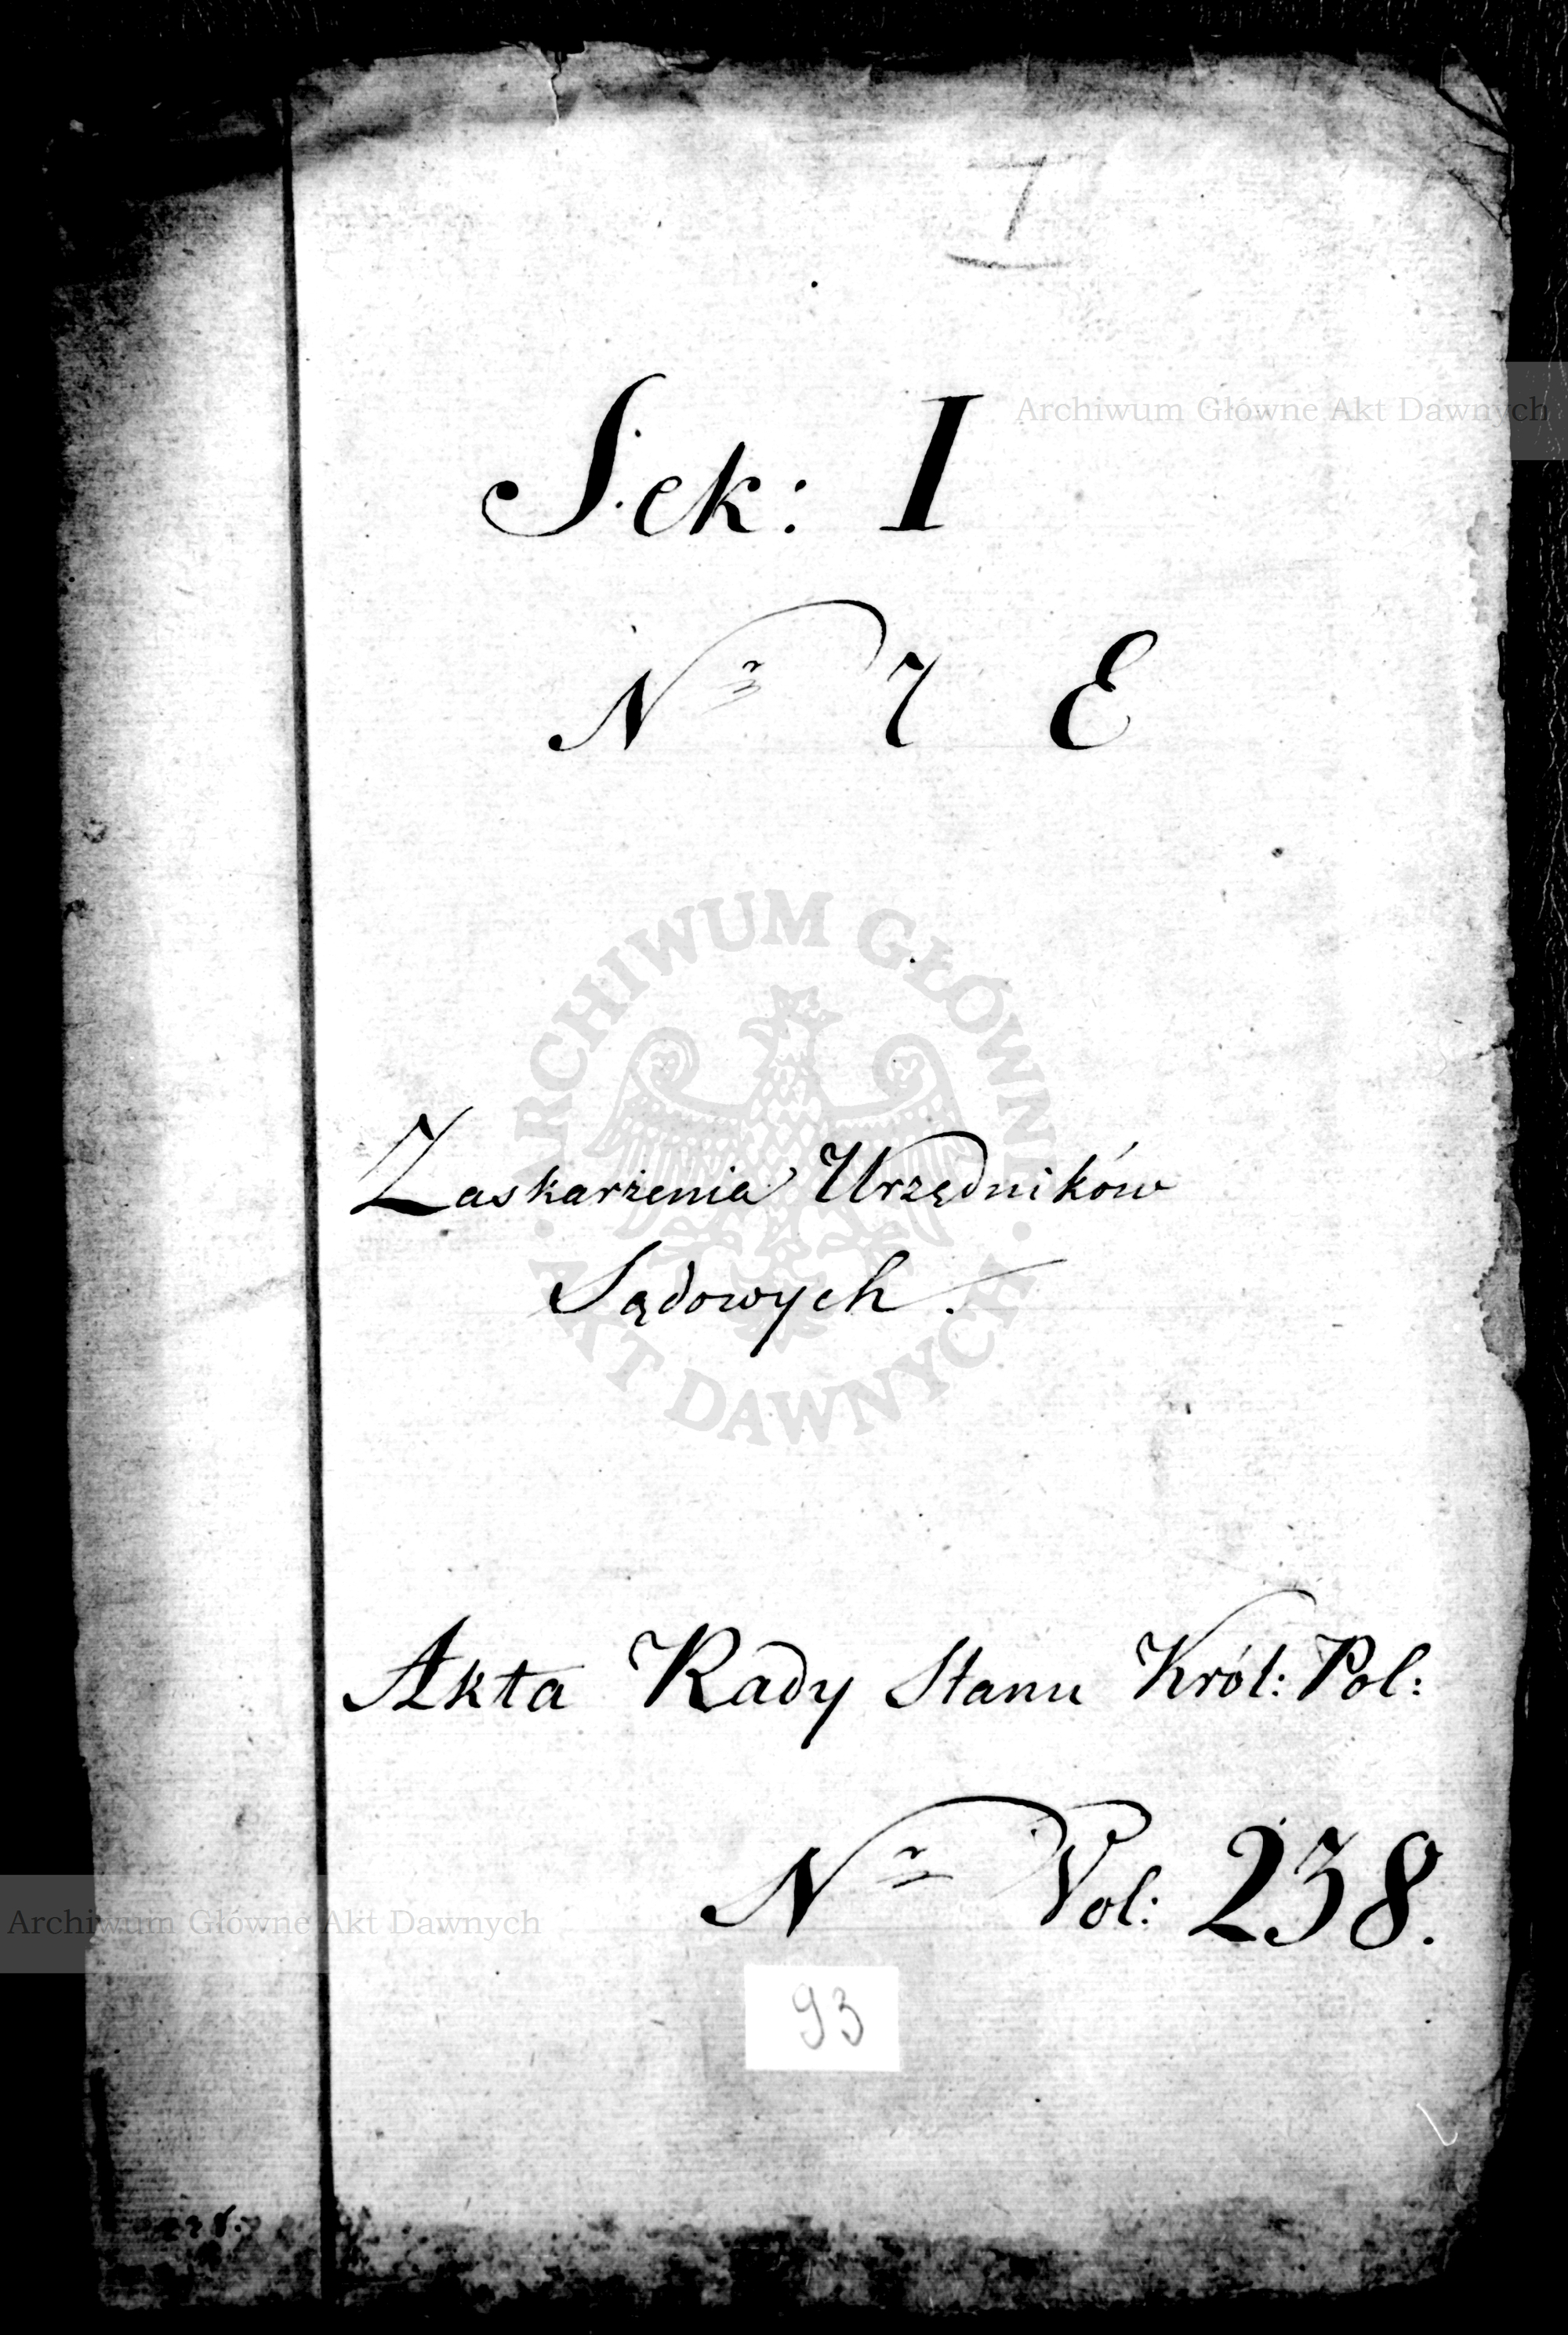 I
Sek: I
Archiwum Główne Akt Dawnych
Nr 7 E
ARCHIWUM GŁÓWNE AKT DAWNYCH
Zaskarżenia Urzędników
Sądowych.
Akta Rady Stanu Król: Pol:
Nr Vol: 238.
Archiwum Główne Akt Dawnych
93